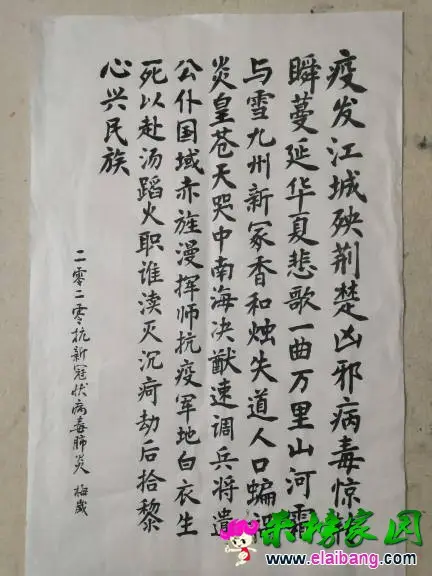 疫发江城殃荆楚凶邪病毒惊
瞬蔓延华夏悲歌一曲万里山河霜
与雪九州新冢香和烛失道人口蝙
炎皇苍天咒中南海决猷速调兵将遣
公仆国域赤旌漫挥师抗疫军地白衣生
死以赴汤蹈火职谁渎灭沉疴劫后拾黎
心兴民族
二零二零抗新冠状病毒肺炎 梅
来榜家园
www.elaibang.com